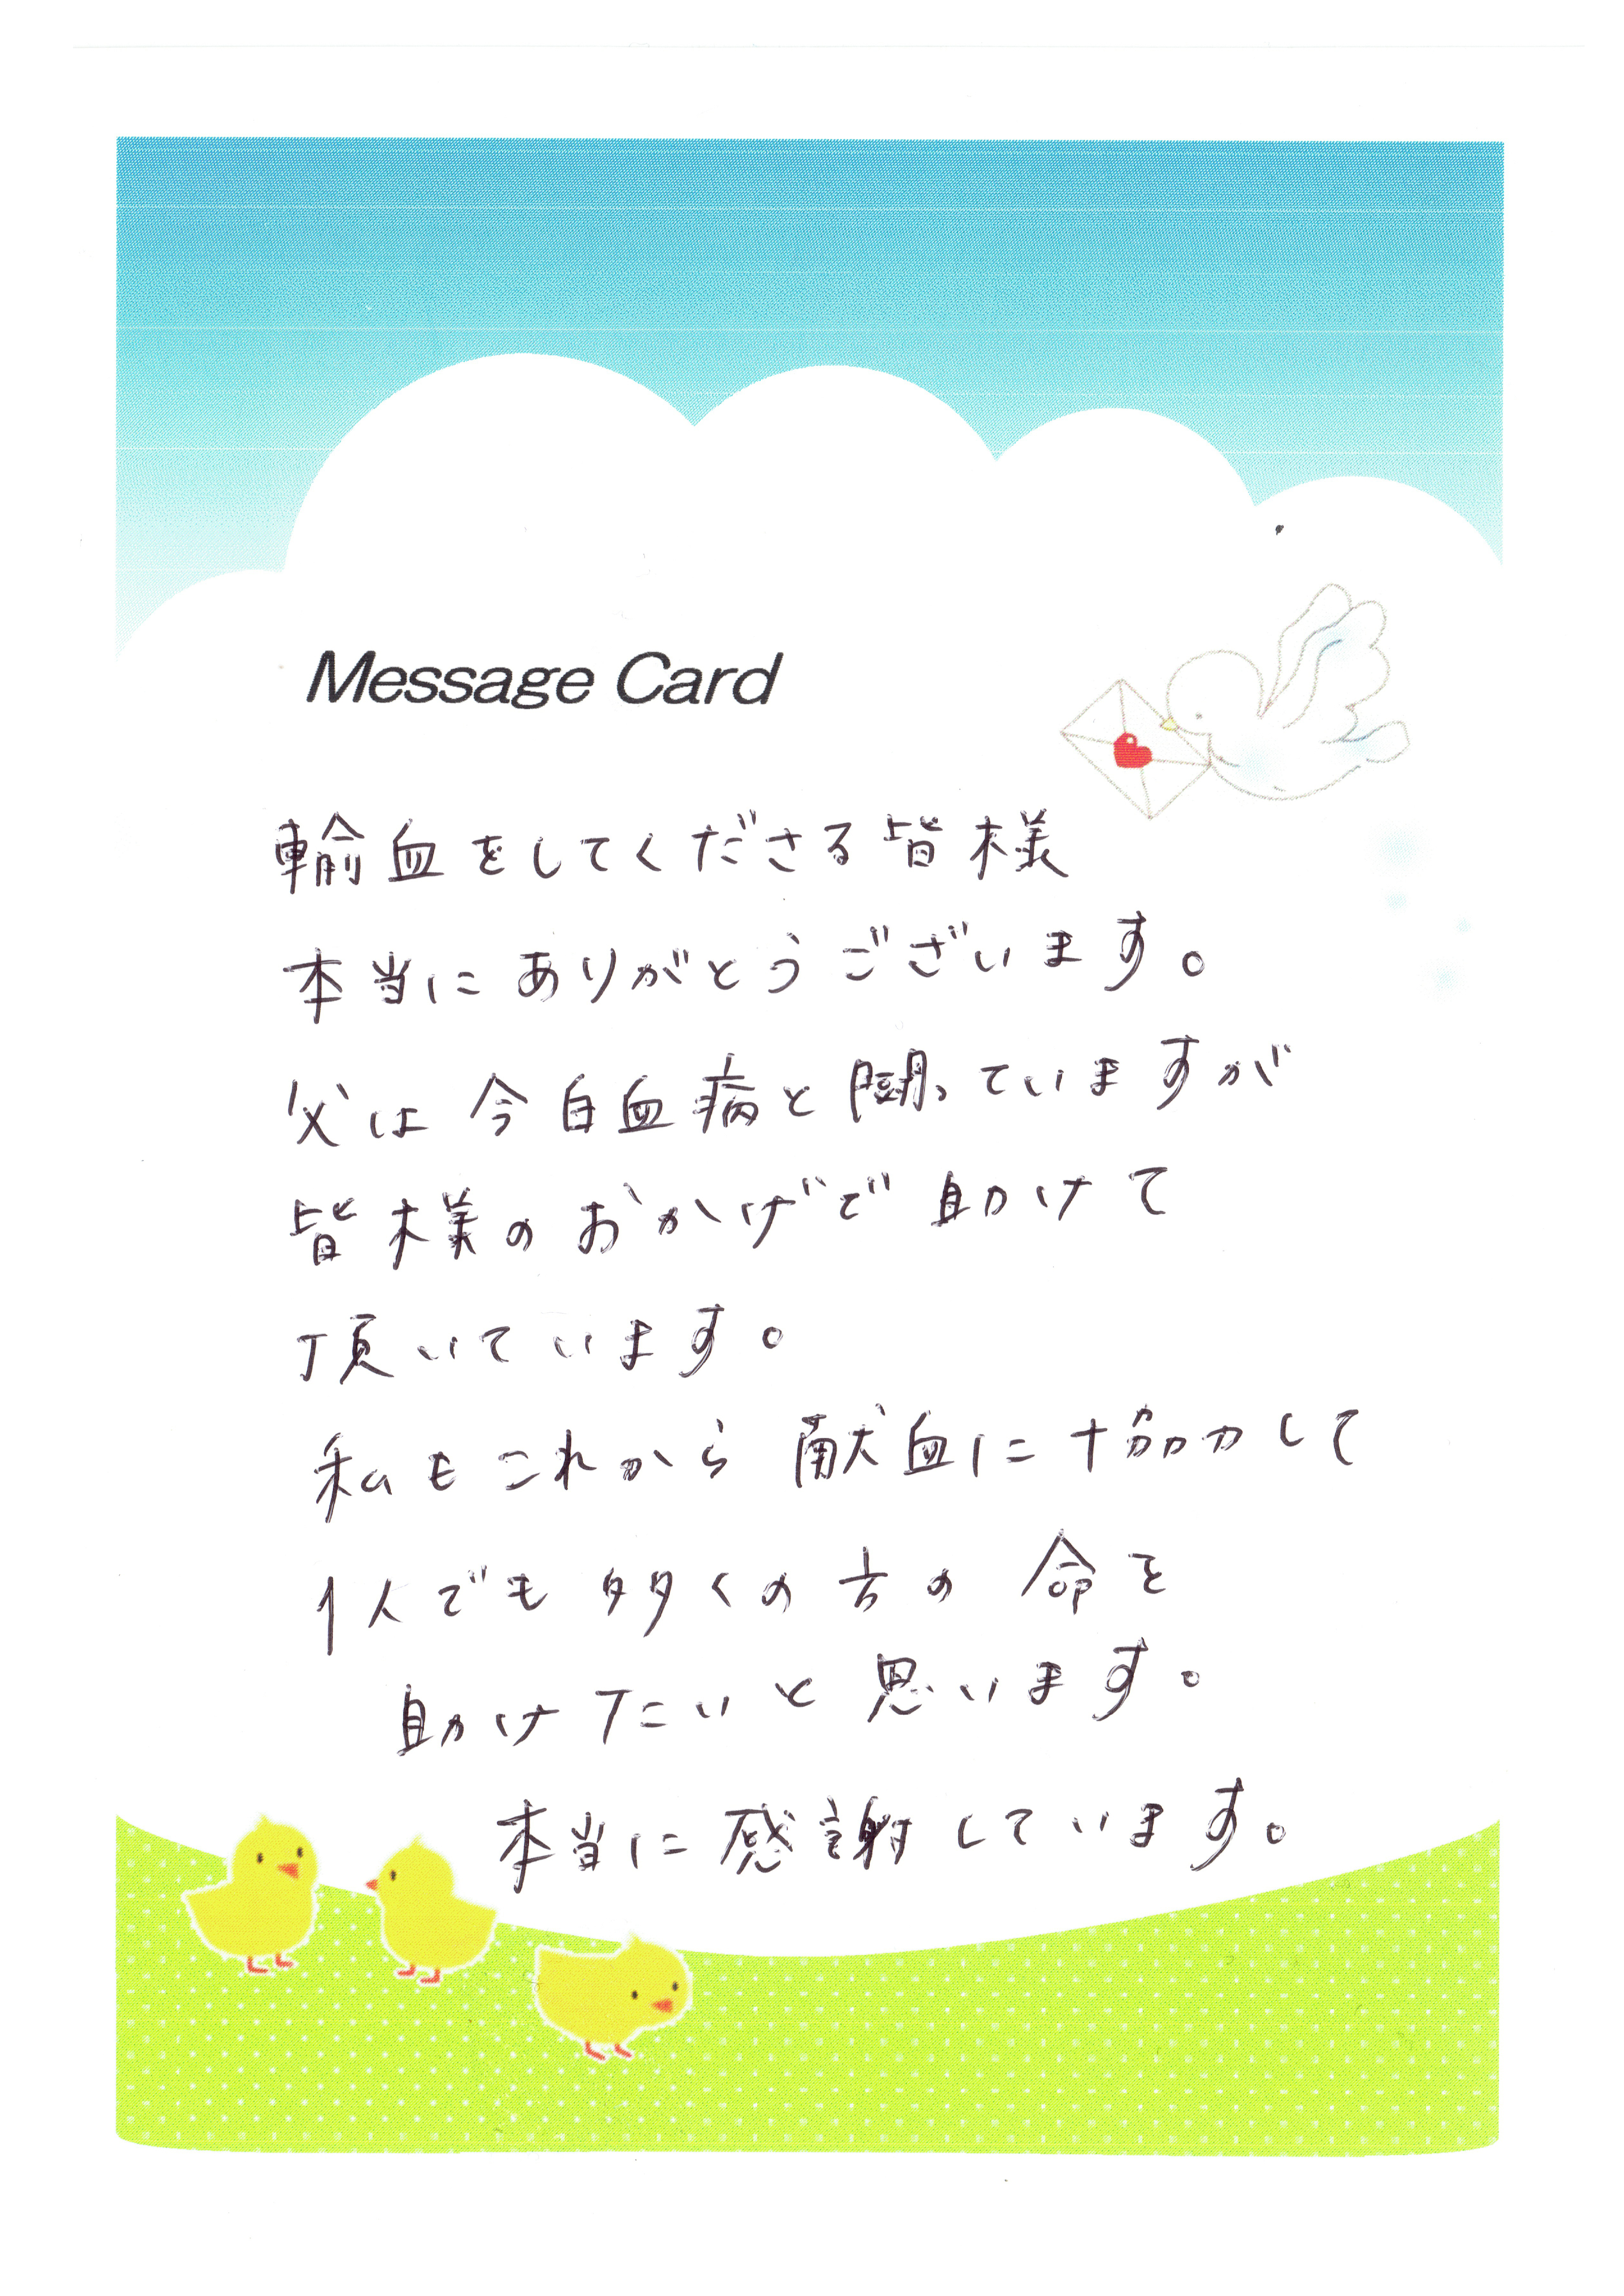 Message Card
輸血をしてくださる皆様
本当にありがとうございます。
父は今白血病と闘っていますが
皆様のおかげで助けて
頂いています。
私もこれから献血に協力して
1人でも多くの方の命を
助けたいと思います。
本当に感謝しています。